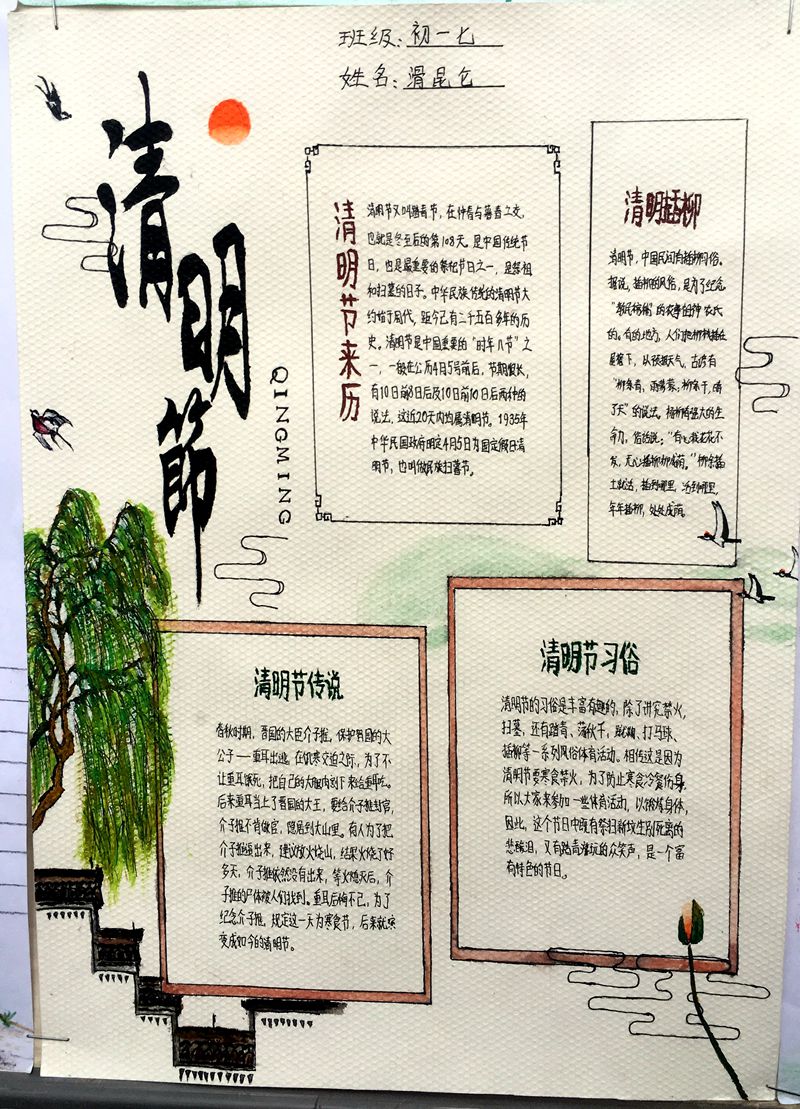 班级：初一七
姓名：滑昆仑
清明節
QINGMING
清明节来历
清明节又叫踏青节，在仲春与暮春之交，
也就是冬至后的第108天。是中国传统节
日，也是最重要的祭祀节日之一，是祭祖
和扫墓的日子。中华民族传统的清明节大
约始于周代，距今已有二千五百多年的历
史。清明节是中国重要的“时年八节”之
一，一般在公历4月5号前后，节期很长，
有10日前8日后及10日前10日后两种的
说法，这近20天内均属清明节。1935年
中华民国政府明定4月5日为国定假日清
明节，也叫做民族扫墓节。
清明插柳
清明节，中国民间有插柳习俗。
据说，插柳的风俗，是为了纪念
“教民稼穑”的农事祖神农氏
的。有的地方，人们把柳枝插在
屋檐下，以预报天气。古谚有
“柳条青，雨蒙蒙；柳条干，晴
了天”的说法。杨柳有强大的生
命力，俗话说：“有心栽花花不
发，无心插柳柳成荫。”柳条插
土就活，插到哪里，活到哪里，
年年插柳，处处成荫。
清明节传说
春秋时期，晋国的大臣介子推，保护晋国的大
公子——重耳出逃。在饥寒交迫之际，为了不
让重耳饿死，把自己的大腿肉割下来给重耳吃。
后来重耳当上了晋国的大王，要给介子推封官，
介子推不肯做官，隐居到大山里。有人为了把
介子推逼出来，建议放火烧山，结果火烧了好
多天，介子推依然没有出来，等火熄灭后，介
子推的尸体被人们找到。重耳后悔不已，为了
纪念介子推，规定这一天为寒食节，后来就演
变成如今的清明节。
清明节习俗
清明节的习俗是丰富有趣的，除了讲究禁火，
扫墓，还有踏青、荡秋千、蹴鞠、打马球、
插柳等一系列风俗体育活动。相传这是因为
清明节要寒食禁火，为了防止寒食冷餐伤身，
所以大家来参加一些体育活动，以锻炼身体，
因此，这个节日中既有祭扫新坟生别死离的
悲酸泪，又有踏青游玩的欢笑声，是一个富
有特色的节日。